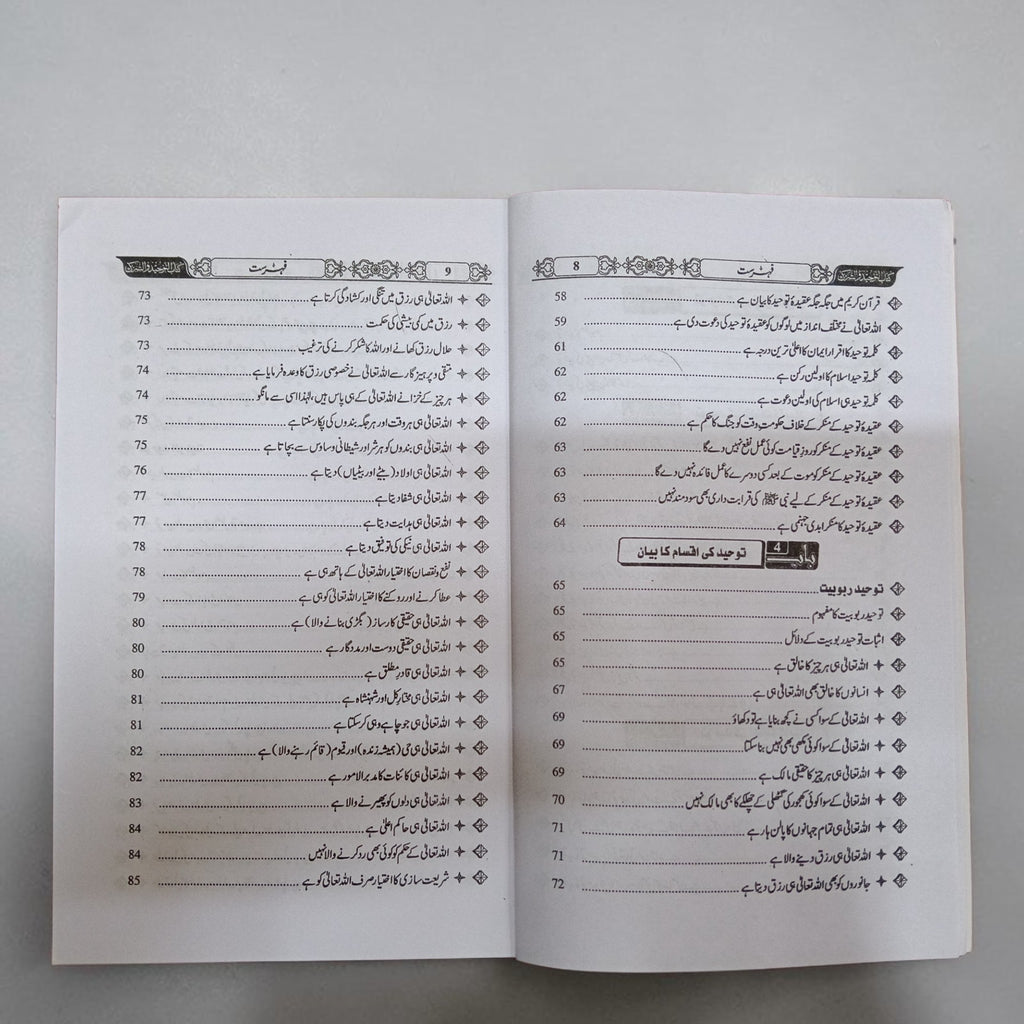 کتاب التوحید والشرک
فہرست
8
قرآن کریم میں جگہ جگہ عقیدۂ توحید کا بیان ہے ........ 58
اللہ تعالیٰ نے مختلف انداز میں لوگوں کو عقیدۂ توحید کی دعوت دی ہے ........ 59
کلمہ توحید کا اقرار ایمان کا اعلیٰ ترین درجہ ہے ........ 61
کلمہ توحید اسلام کا اولین رکن ہے ........ 62
کلمہ توحید ہی اسلام کی اولین دعوت ہے ........ 62
عقیدۂ توحید کے منکر کے خلاف حکومت وقت کو جنگ کا حکم ہے ........ 62
عقیدۂ توحید کے منکر کو روزِ قیامت کوئی عمل نفع نہیں دے گا ........ 63
عقیدۂ توحید کے منکر کو موت کے بعد کسی دوسرے کا عمل فائدہ نہیں دے گا ........ 63
عقیدۂ توحید کے منکر کے لیے نبی ﷺ کی قرابت داری بھی سود مند نہیں ........ 63
عقیدۂ توحید کا منکر ابدی جہنمی ہے ........ 64
باب 4 توحید کی اقسام کا بیان
توحید ربوبیت ........ 65
توحید ربوبیت کا مفہوم ........ 65
اثبات توحید ربوبیت کے دلائل ........ 65
اللہ تعالیٰ ہی ہر چیز کا خالق ہے ........ 65
انسانوں کا خالق بھی اللہ تعالیٰ ہی ہے ........ 67
اللہ تعالیٰ کے سوا کسی نے کچھ بنایا ہے تو دکھاؤ ........ 69
اللہ تعالیٰ کے سوا کوئی مکھی بھی نہیں بنا سکتا ........ 69
اللہ تعالیٰ ہی ہر چیز کا حقیقی مالک ہے ........ 69
اللہ تعالیٰ کے سوا کوئی کھجور کی گٹھلی کے چھلکے کا بھی مالک نہیں ........ 70
اللہ تعالیٰ ہی تمام جہانوں کا پالن ہار ہے ........ 71
اللہ تعالیٰ ہی رزق دینے والا ہے ........ 71
جانوروں کو بھی اللہ تعالیٰ ہی رزق دیتا ہے ........ 72
کتاب التوحید والشرک
فہرست
9
اللہ تعالیٰ ہی رزق میں تنگی اور کشادگی کرتا ہے ........ 73
رزق میں کمی بیشی کی حکمت ........ 73
حلال رزق کھانے اور اللہ کا شکر کرنے کی ترغیب ........ 73
متقی و پرہیزگار سے اللہ تعالیٰ نے خصوصی رزق کا وعدہ فرمایا ہے ........ 74
ہر چیز کے خزانے اللہ تعالیٰ کے ہی پاس ہیں، لہٰذا اسی سے مانگو ........ 74
اللہ تعالیٰ ہی ہر وقت اور ہر جگہ بندوں کی پکار سنتا ہے ........ 75
اللہ تعالیٰ ہی بندوں کو ہر شر اور شیطانی وساوس سے بچاتا ہے ........ 75
اللہ تعالیٰ ہی اولاد (بیٹے اور بیٹیاں) دیتا ہے ........ 76
اللہ تعالیٰ ہی شفا دیتا ہے ........ 77
اللہ تعالیٰ ہی ہدایت دیتا ہے ........ 77
اللہ تعالیٰ ہی نیکی کی توفیق دیتا ہے ........ 78
نفع و نقصان کا اختیار اللہ تعالیٰ کے ہاتھ ہی ہے ........ 78
عطا کرنے اور روکنے کا اختیار اللہ تعالیٰ کو ہی ہے ........ 79
اللہ تعالیٰ ہی حقیقی کارساز (بگڑی بنانے والا) ہے ........ 80
اللہ تعالیٰ ہی حقیقی دوست اور مددگار ہے ........ 80
اللہ تعالیٰ ہی قادرِ مطلق ہے ........ 80
اللہ تعالیٰ ہی مختارِ کل اور شہنشاہ ہے ........ 81
اللہ تعالیٰ ہی جو چاہے وہی کر سکتا ہے ........ 81
اللہ تعالیٰ ہی حی (ہمیشہ زندہ) اور قیوم (قائم رہنے والا) ہے ........ 82
اللہ تعالیٰ ہی کائنات کا مدبر الامور ہے ........ 82
اللہ تعالیٰ ہی دلوں کو پھیرنے والا ہے ........ 83
اللہ تعالیٰ ہی حاکم اعلیٰ ہے ........ 84
اللہ تعالیٰ کے حکم کو کوئی بھی رد کرنے والا نہیں ........ 84
شریعت سازی کا اختیار صرف اللہ تعالیٰ کو ہے ........ 85